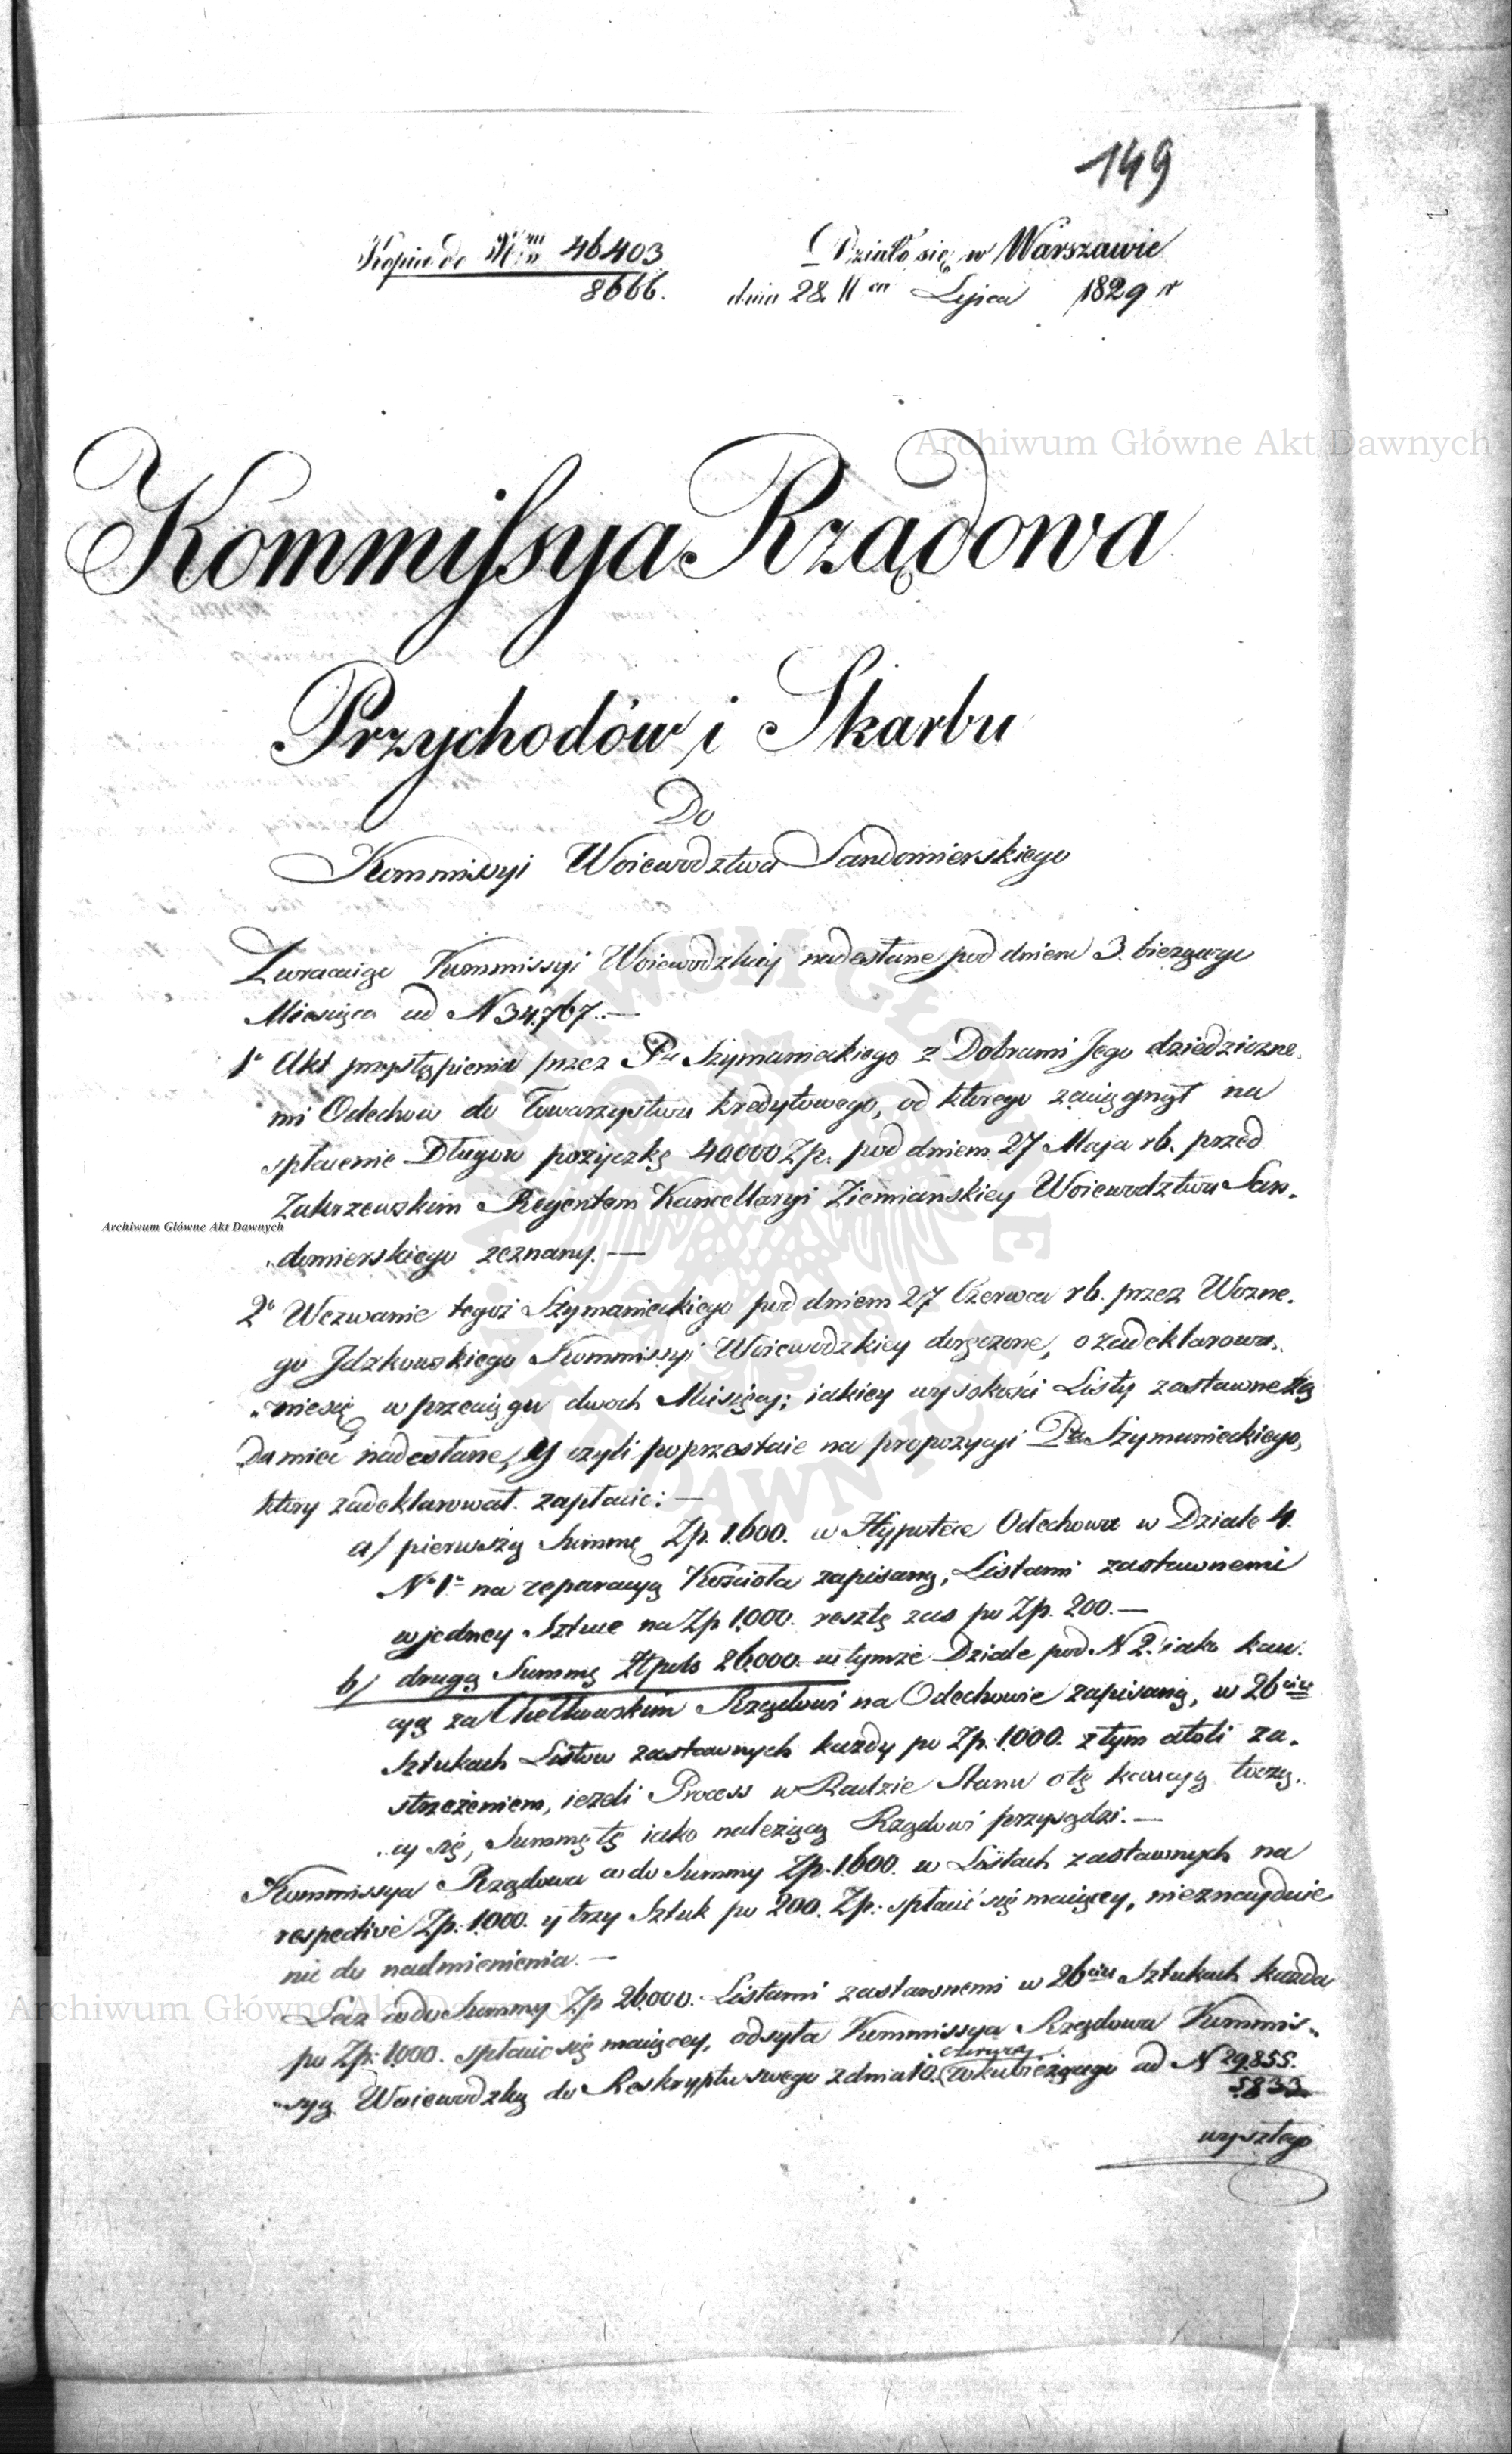 149
Kopia do N<sup>ru</sup> 46403
8666.
Działo się w Warszawie
dnia 28 Lipca 1829 r
Kommissya Rządowa
Przychodów i Skarbu
Do
Kommissyi Woiewodztwa Sandomierskiego
Zwracaiąc Kommissyi Woiewodzkiey nadesłane pod dniem 3. bieżącego
Miesiąca ad N 34,767. —
1<sup>o</sup> Akt przystąpienia przez P<sup>a</sup> Szymanieckiego z Dobrami Jego dziedziczne-
mi Odechow do Towarzystwa kredytowego, od którego zaciągnął na
spłacenie Długow pożyczkę 40.000 Zp. pod dniem 27 Maja rb. przed
Zakrzewskim Regentem Kancellaryi Ziemiańskiey Woiewodztwa San-
domierskiego zeznany. —
2<sup>o</sup> Wezwanie tegoż Szymanieckiego pod dniem 27 Czerwca rb. przez Wozne-
go Jdzkowskiego Kommissyi Woiewodzkiey doręczone, o zadeklarowa-
nie się w przeciągu dwoch Miesięcy; iakiey wysokości Listy zastawne żą
da mieć nadesłane, y czyli poprzestaie na propozycyi P<sup>a</sup> Szymanieckiego,
ktory zadeklarował zapłacić: —
a/ pierwszą Summę Zp. 1.600. w Hypotece Odechowa w Dziale 4.
N<sup>o</sup> 1<sup>o</sup> na reparacyą Kościoła zapisaną, Listami zastawnemi
w jedney Sztuce na Zp 1.000. resztę zas po Zp. 200. —
b/ drugą Summę Złpols 26.000. w tymże Dziale pod N 2. iako kau-
cyą za Chełkowskim Rządowi na Odechowie zapisaną, w 26<sup>ciu</sup>
Sztukach Listow zastawnych każdy po Zp. 1.000. z tym atoli za-
strzeżeniem, ieżeli Process w Radzie Stanu o tę kaucyą toczą-
cy się, Summę tę iako należącą Rządowi przysądzi. —
Kommissya Rządowa co do Summy Zp. 1.600. w Listach zastawnych na
respective Zp: 1.000. y trzy Sztuk po 200. Zp: spłacić się maiącey, nieznayduie
nic do nadmienienia. —
Lecz co do Summy Zp 26.000. Listami zastawnemi w 26<sup>ciu</sup> Sztukach każda
po Zp: 1.000. spłacić się maiącey, odsyła Kommissya Rządowa Kommis-
syą Woiewodzką do Reskryptu swego z dnia 10. Czerwca roku bieżącego ad N 29.855.
5833
wyszłego
Archiwum Główne Akt Dawnych
Archiwum Główne Akt Dawnych
Archiwum Główne Akt Dawnych
ARCHIWUM GŁÓWNE AKT DAWNYCH